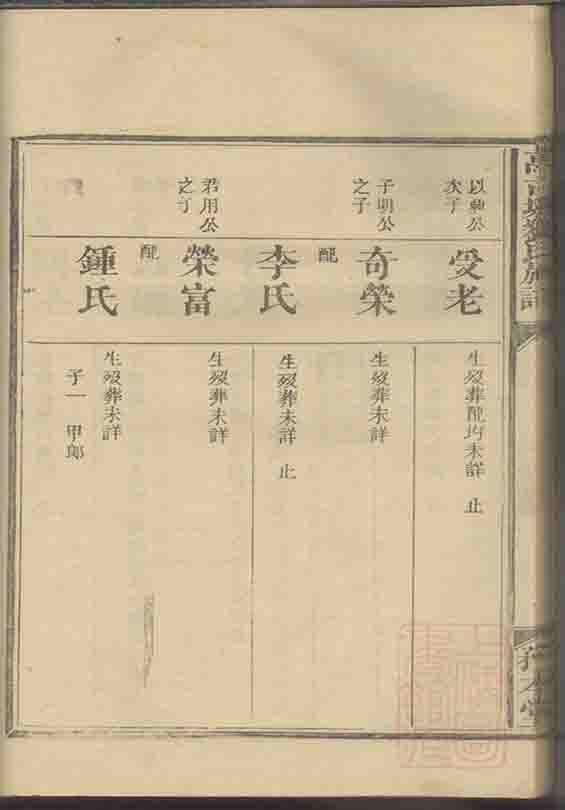 以㒷公
次子
受老
生歿葬配均未詳 止
子明公
之子
奇榮
生歿葬未詳
配
李氏
生歿葬未詳 止
君用公
之子
榮富
生歿葬未詳
配
鍾氏
生歿葬未詳
子一 甲郎